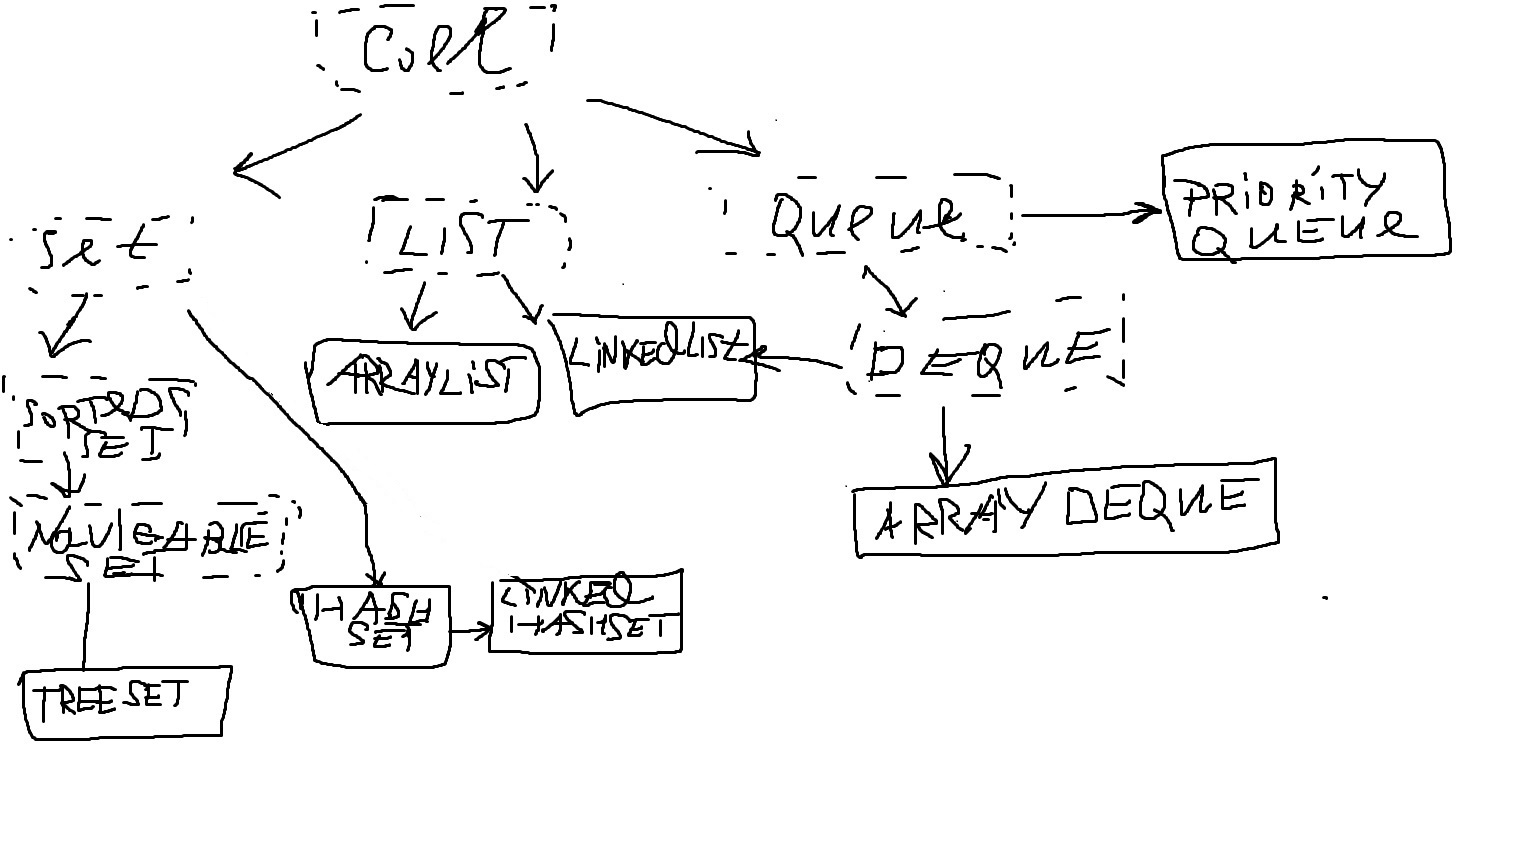 Coll
Set
LIST
Queue
PRiORiTY
QUEUe
ARRAYLIST
LiNKEDLiSt
DEQUE
SORTEDS
SET
NAVIGABLE
SET
ARRAY DEQUE
HASH
SET
LINKED
HASHSET
TREESET